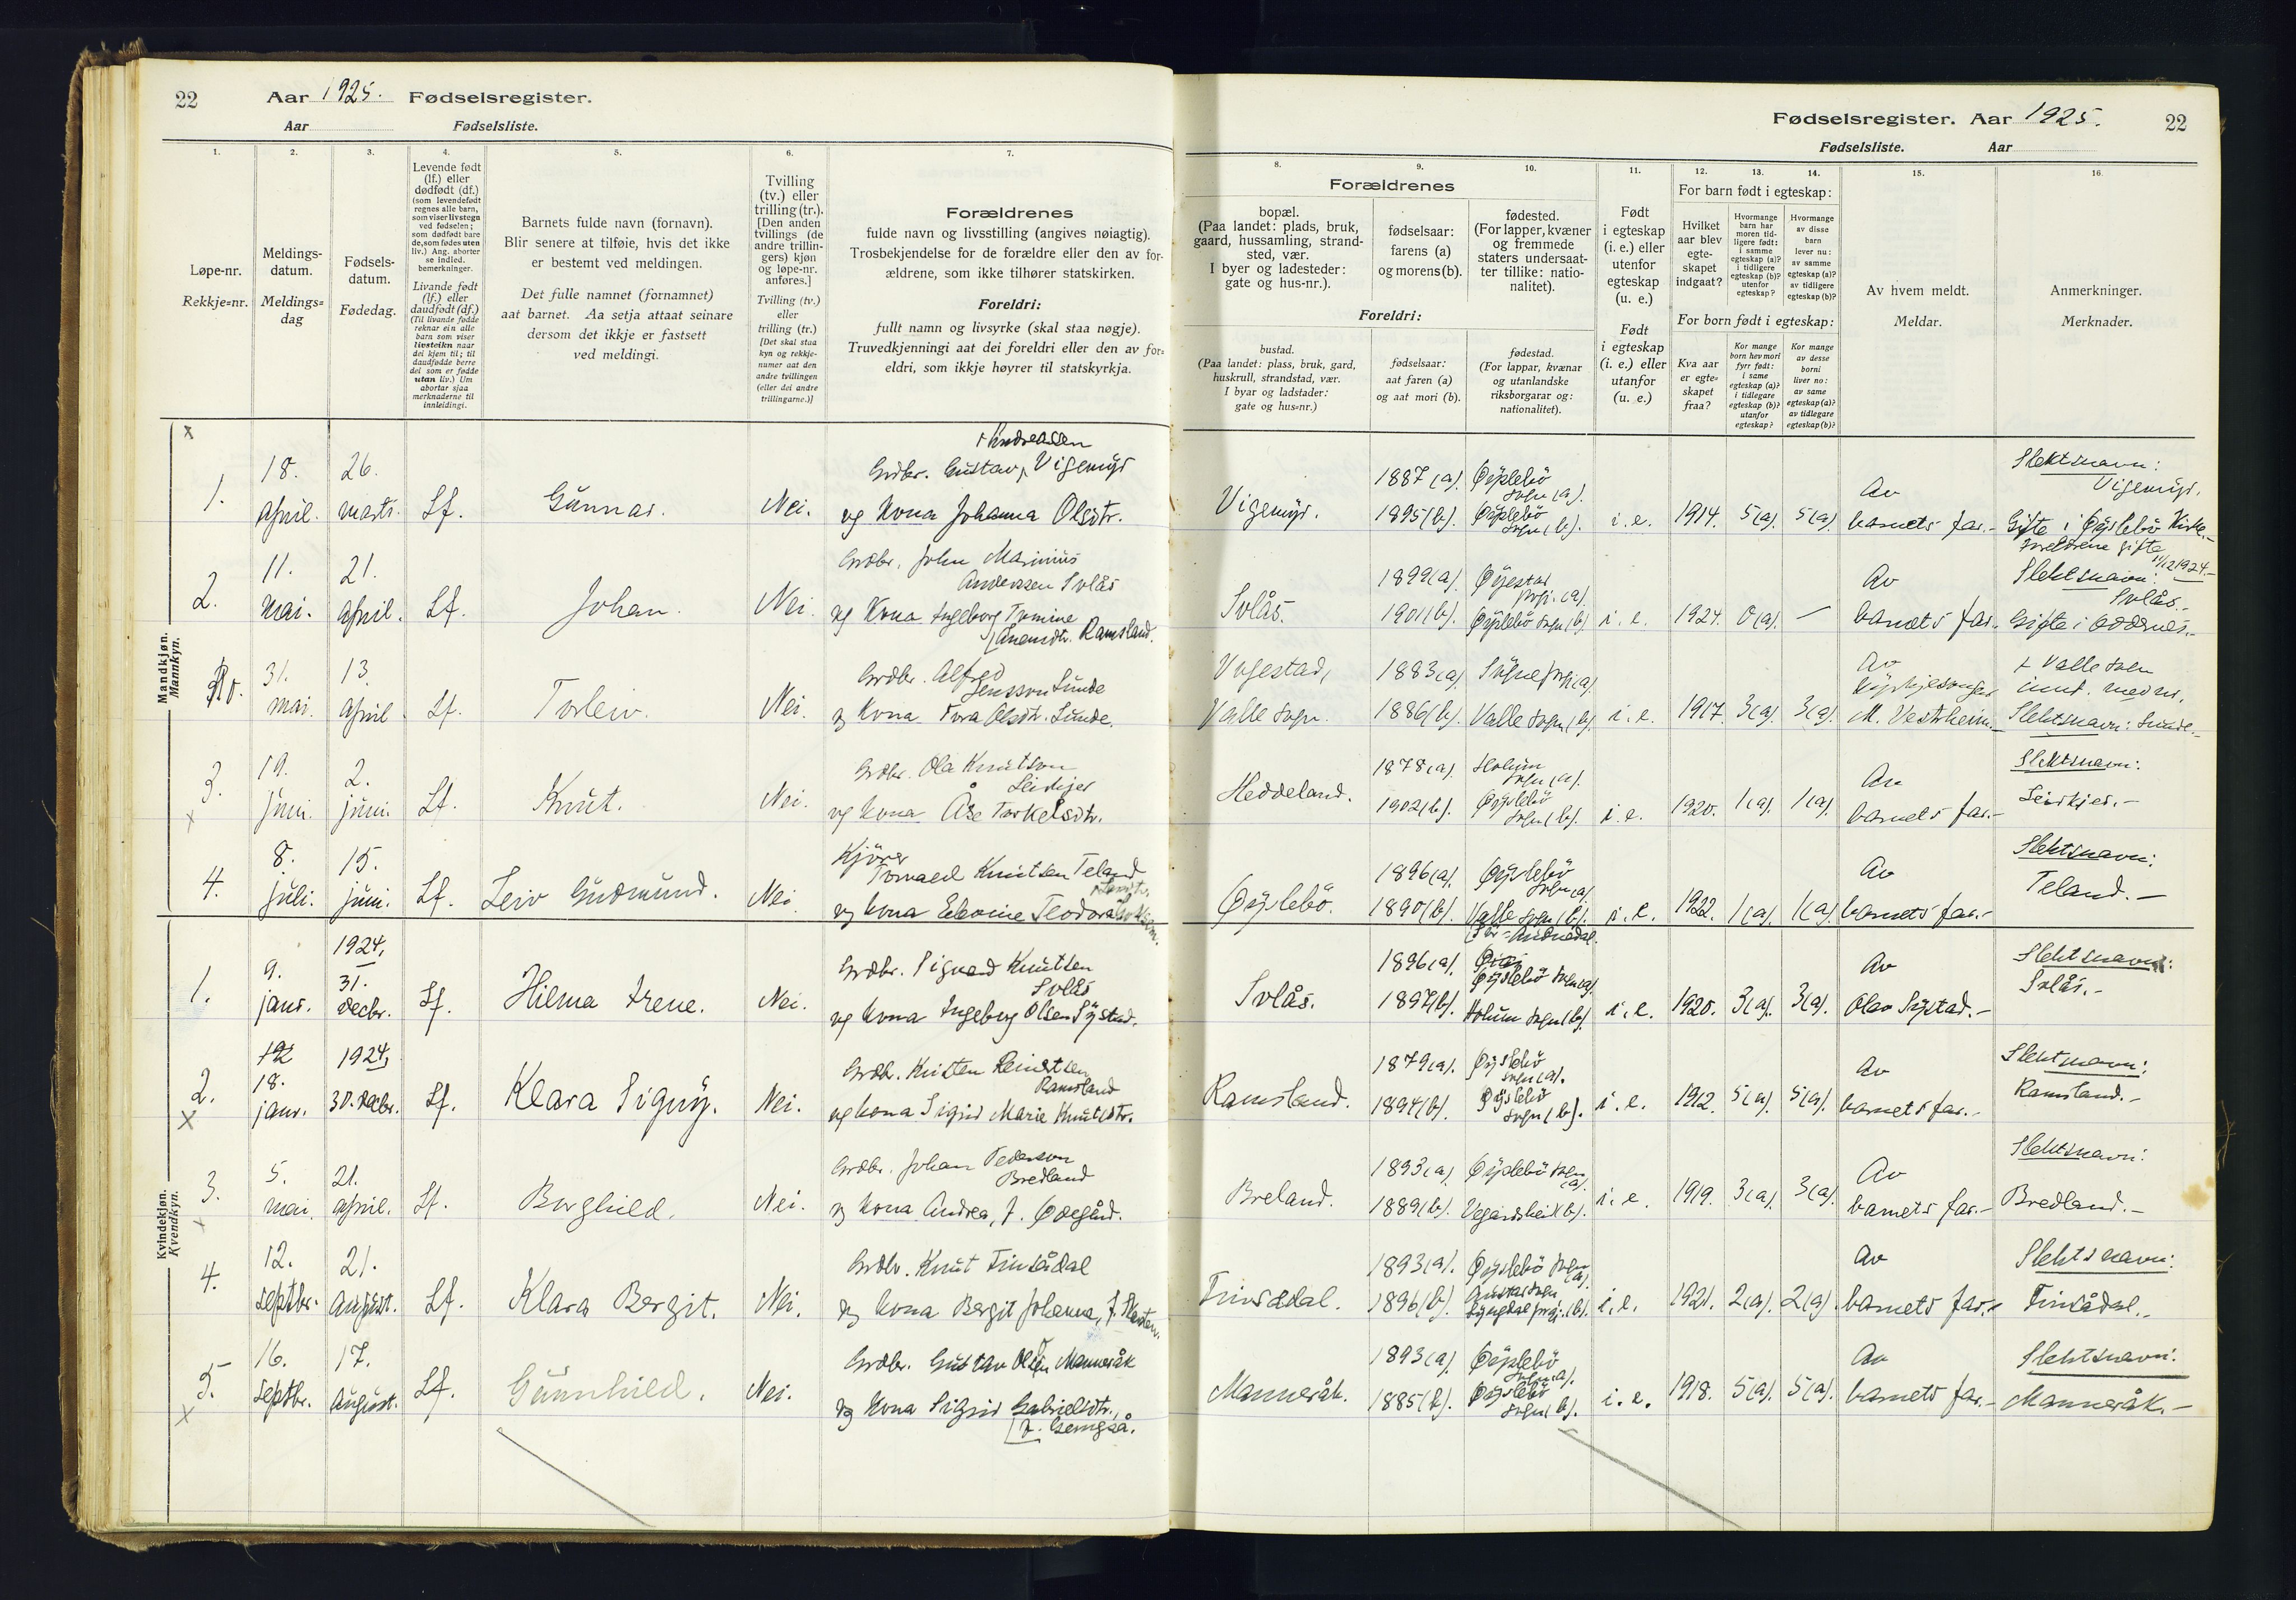 22 Aar 1925. Fødselsregister.
Aar Fødselsliste.
Fødselsregister. Aar 1925. 22
Fødselsliste. Aar
1. 2. 3. 4. 5. 6. 7.
Løpe-nr.
Rekkje-nr.
Meldings-
datum.
Meldings-
dag
Fødsels-
datum.
Fødedag.
Levende født
(lf.) eller
dødfødt (df.)
(som levendefødt
regnes alle barn,
som viser livstegn
ved fødselen;
som dødfødt bare
de, som fødes uten
liv.) Ang. aborter
se indled.
bemerkninger.
Livande født
(lf.) eller
daudfødt (df.)
(Til livande fødde
reknar ein alle
barn som viser
livsteikn naar
dei kjem til; til
daudfødde berre
dei som er fødde
utan liv.) Um
abortar sjaa
merknaderne til
innleidingi.
Barnets fulde navn (fornavn).
Blir senere at tilføie, hvis det ikke
er bestemt ved meldingen.
Det fulle namnet (fornamnet)
aat barnet. Aa setja attaat seinare
dersom det ikkje er fastsett
ved meldingi.
Tvilling
(tv.) eller
trilling (tr.).
[Den anden
tvillings (de
andre trillin-
gers) kjøn
og løpe-nr.
anføres.]
Tvilling (tv.)
eller
trilling (tr.)
[Det skal staa
kyn og rekkje-
numer aat den
andre tvillingen
(eller dei andre
trillingarne.)]
Forældrenes
fulde navn og livsstilling (angives nøiagtig).
Trosbekjendelse for de forældre eller den av for-
ældrene, som ikke tilhører statskirken.
Foreldri:
fullt namn og livsyrke (skal staa nøgje).
Truvedkjenningi aat dei foreldri eller den av for-
eldri, som ikkje høyrer til statskyrkja.
8. 9. 10. 11. 12. 13. 14. 15. 16.
Forældrenes
bopæl.
(Paa landet: plads, bruk,
gaard, hussamling, strand-
sted, vær.
I byer og ladesteder:
gate og hus-nr.).
fødselsaar:
farens (a)
og morens (b).
fødested.
(For lapper, kvæner
og fremmede
staters undersaat-
ter tillike: natio-
nalitet).
Foreldri:
bustad.
(Paa landet: plass, bruk, gard,
huskrull, strandstad, vær.
I byar og ladstader:
gate og hus-nr.)
fødselsaar:
aat faren (a)
og aat mori (b).
fødestad.
(For lappar, kvænar
og utanlandske
riksborgarar og:
nationalitet).
Født
i egteskap
(i. e.) eller
utenfor
egteskap
(u. e.)
Født
i egteskap
(i. e.) eller
utanfor
(u. e.)
For barn født i egteskap:
Hvilket
aar blev
egte-
skapet
indgaat?
Hvormange
barn har
moren tid-
ligere født:
i samme
egteskap (a)?
i tidligere
egteskap (b)?
utenfor
egteskap?
Hvormange
av disse
barn
lever nu:
av samme
egteskap (a)?
av tidligere
egteskap (b)?
For born født i egteskap:
Kva aar
er egte-
skapet
fraa?
Kor mange
born hev mori
fyrr født:
i same
egteskap (a)?
i tidlegare
egteskap (b)?
utanfor
egteskap?
Kor mange
av desse
borni
liver no:
av same
egteskap (a)?
av tidlegare
egteskap (b)?
Av hvem meldt.
Meldar.
Anmerkninger.
Merknader.
Mandkjøn.
Mannkyn.
x
1. 18. april. 26. marts. Lf. Gunnar. Nei.
+ Andreassen
Grdbr. Gustav, Vigemyr
og kona Johanna Olsdtr.
Vigemyr. 1887 (a). 1895 (b). Øyslebö sogn (a). Øyslebö sogn (b). i. e. 1914. 5 (a). 5 (a). Av barnets far.-
Slektsnavn:
Vigemyr.
Gifte i Øyslebö Kirke.-
2. 11. mai. 21. april. Lf. Johan. Nei.
Grdbr. John Marinius
Anderssen Solås
og kona Ingeborg Tomine
Ramsland.
Solås. 1899 (a). 1901 (b). Øyestad prgj. (a). Øyslebö sogn (b). i. e. 1924. 0 (a). — Av barnets far.-
Foreldrene gifte
1924.-
Slektsnavn:
Solås.-
Gifte i Oddernes.-
31. mai. 13. april. Lf. Torleiv. Nei.
Grdbr. Alfred
Jensson Sunde
og kona Tora Olsdtr. Sunde.
Valle sogn. 1883 (a). 1886 (b). Søgne prgj (a). Valle sogn (b). i. e. 1917. 3 (a). 3 (a). Av
M. Vestrheim.-
+ Valle sogn
Slektsnavn: Sunde.-
3. 19. juni. 2. juni. Lf. Knut. Nei.
x
Grdbr. Ola Knutson
Leidkjer
og kona Åse Torkelsdtr.
Heddeland. 1878 (a). 1902 (b). Holum sogn (a). Øyslebö sogn (b). i. e. 1920. 1 (a). 1 (a). Av barnets far.-
Slektsnavn:
Leidkjer.-
4. 8. juli. 15. juni. Lf. Leiv Gudmund. Nei.
Kjörer
Tomaed Knutsen Teland
og kona Elevine Teodora
Øyslebö. 1896 (a). 1890 (b). Øyslebö sogn (a). Valle sogn (b). (Sör-Audnedal. i. e. 1922. 1 (a). 1 (a). Av barnets far.-
Slektsnavn:
Teland.-
Kvindekjøn.
Kvendkyn.
1. 9. janr. 1924, 31. decbr. Lf. Hilma Irene. Nei.
Grdbr. Sigurd Knutsen
Solås
og kona Ingeborg Olsen Systad.
Solås. 1896 (a). 1897 (b). Øyslebö sogn (a). Holum sogn (b). i. e. 1920. 3 (a). 3 (a). Av Olav Systad.-
Slektsnavn:
Solås.-
2. 18. janr. 1924, 30. decbr. Lf. Klara Signy. Nei.
x
Grdbr. Kristen Reinertsen
Ramsland
og kona Sigrid Marie Knutsdtr.
Ramsland. 1879 (a). 1894 (b). Øyslebö sogn (a). Øyslebö sogn (b). i. e. 1912. 5 (a). 5 (a). Av barnets far.-
Slektsnavn:
Ramsland.-
3. 5. mai. 21. april. Lf. Borghild. Nei.
x
Grdbr. Johan Pederson
Bredland
og kona Andrea, f. Ødegård.
Breland. 1893 (a). 1889 (b). Øyslebö sogn (a). Vegårdsheid (b). i. e. 1919. 3 (a). 3 (a). Av barnets far.-
Slektsnavn:
Bredland.-
4. 12. septbr. 21. august. Lf. Klara Bergit. Nei.
Grdbr. Knut Finsådal
og kona Bergit Johanna,
Finsådal. 1893 (a). 1896 (b). Øyslebö sogn (a). Austad sogn Lyngdal prgj. (b). i. e. 1921. 2 (a). 2 (a). Av barnets far.-
Slektsnavn:
Finsådal.-
5. 16. septbr. 17. august. Lf. Gunnhild. Nei.
x
Grdbr. Gustav Olsen Mannsåk
og kona Sigrid Gabrielsdtr.,
Mannsåk. 1893 (a). 1885 (b). Øyslebö sogn (a). Øyslebö sogn (b). i. e. 1918. 5 (a). 5 (a). Av barnets far.-
Slektsnavn:
Mannsåk.-